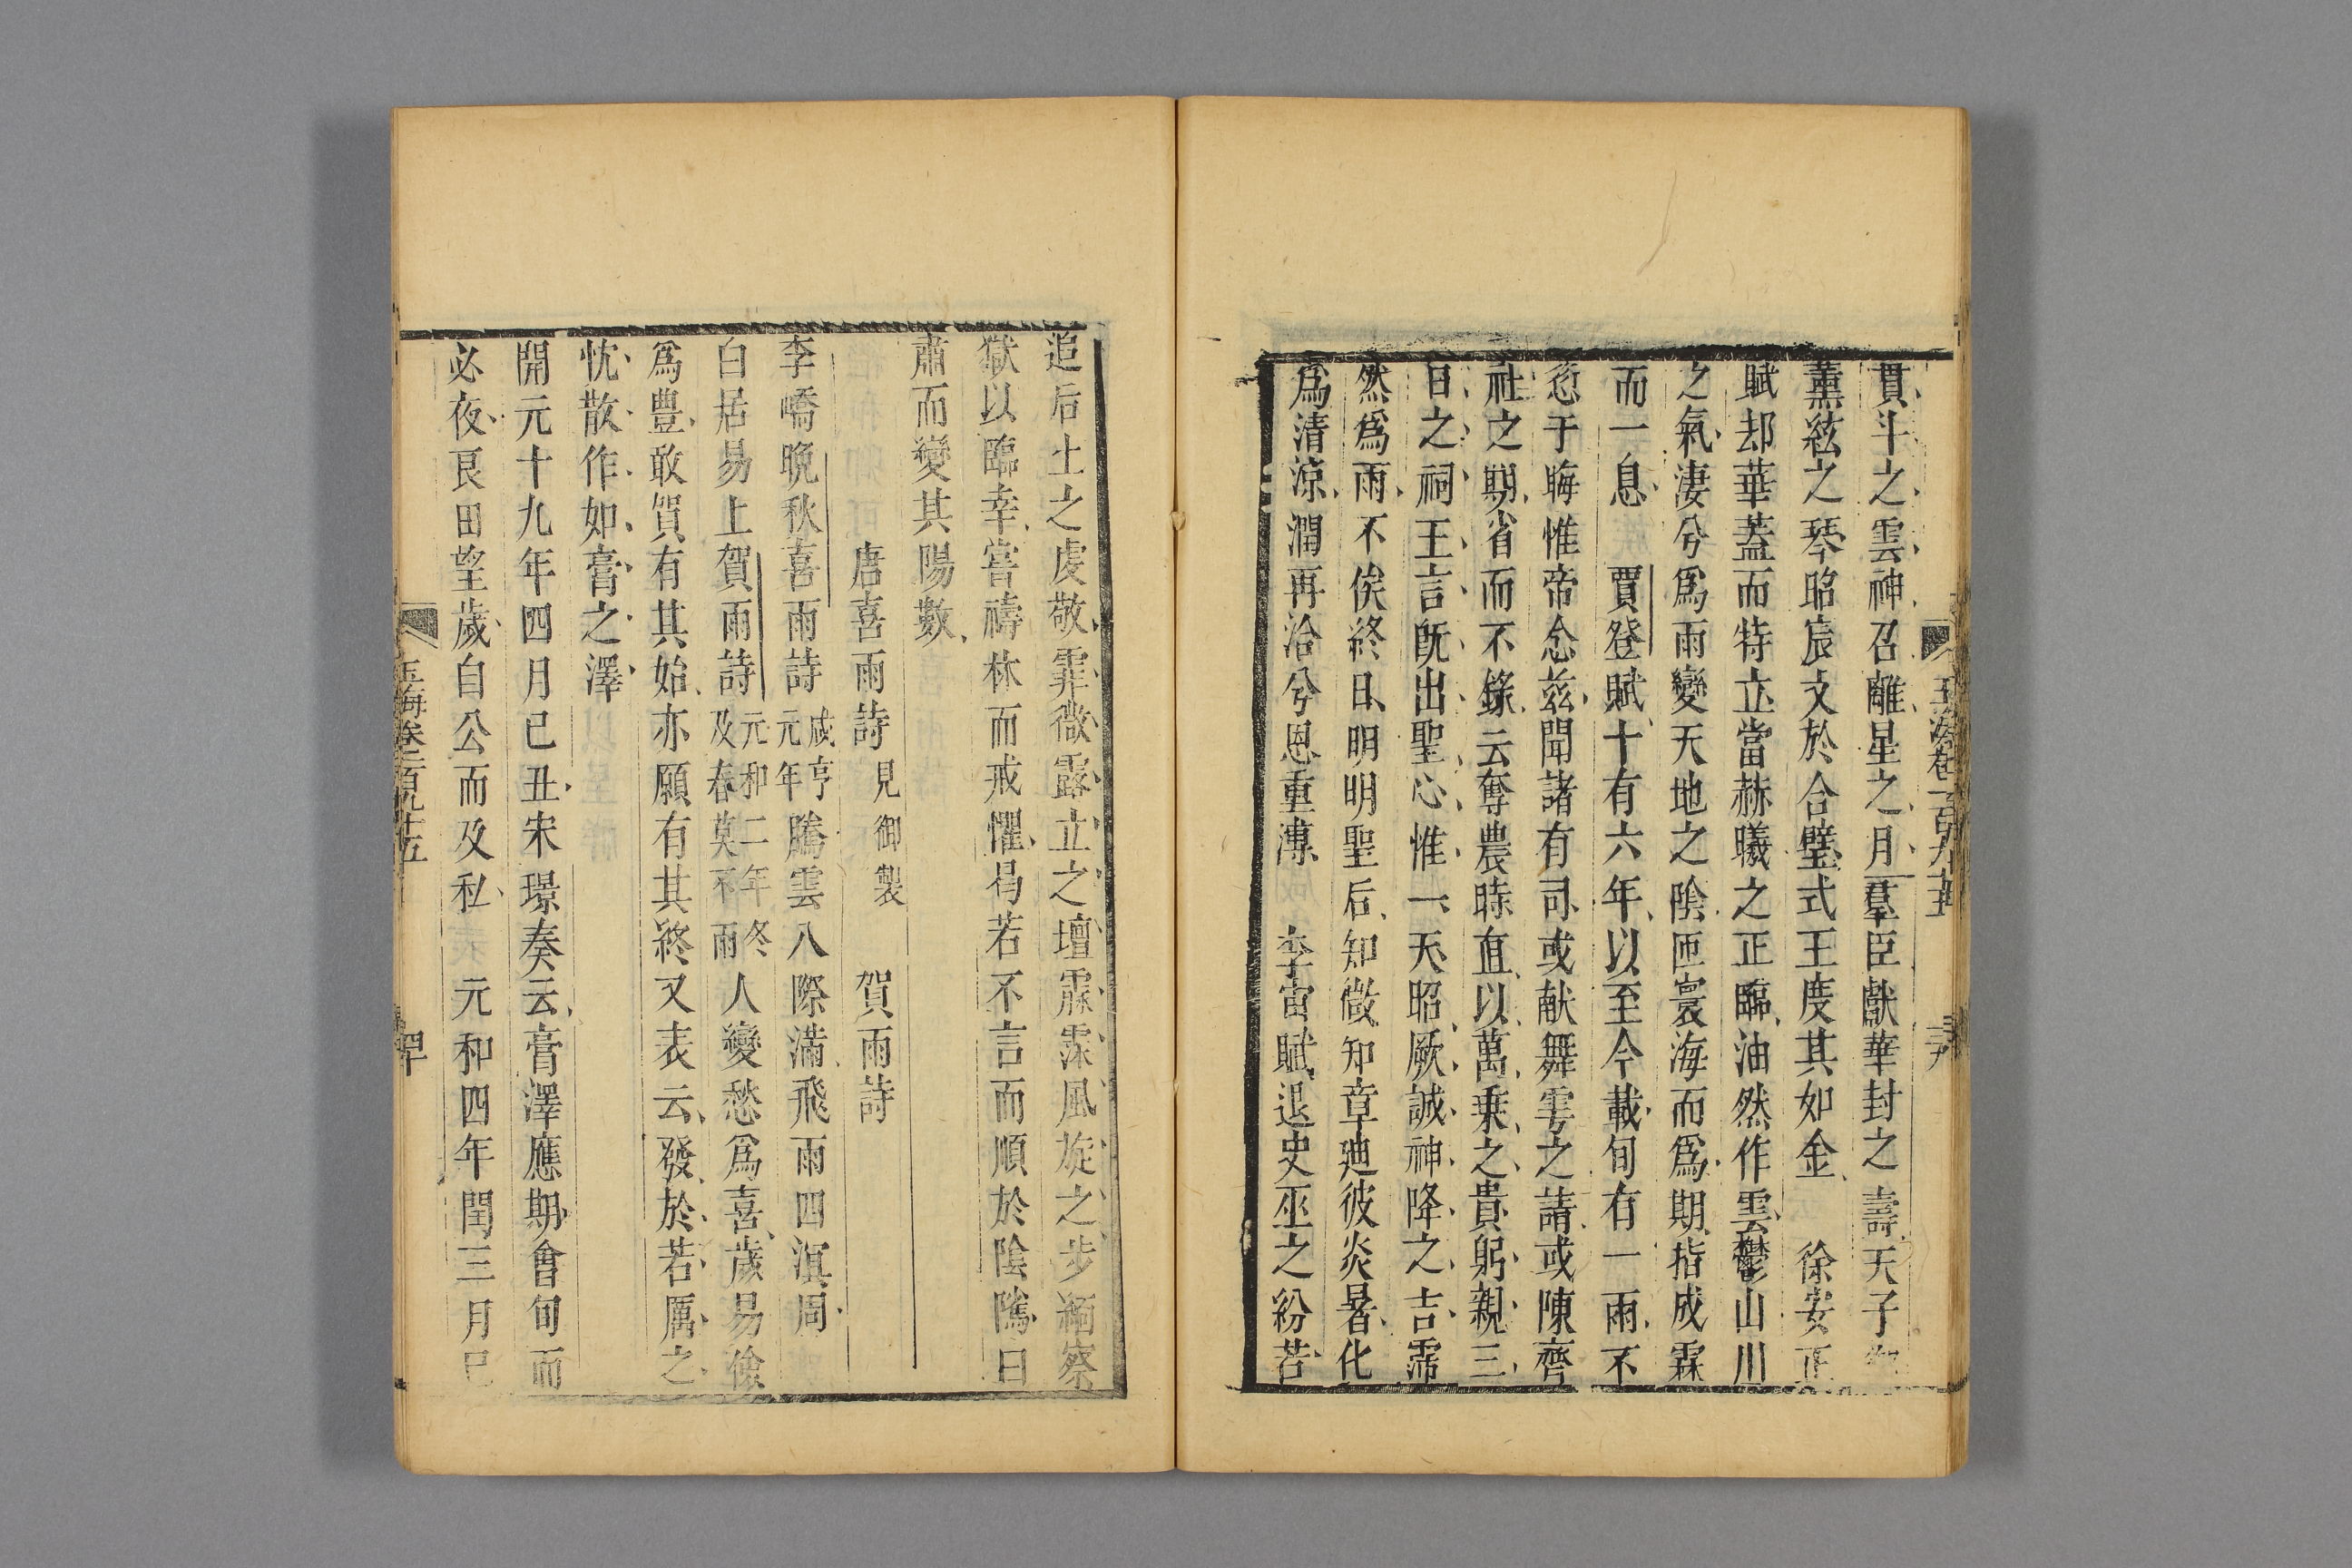 玉海卷一百九十五 三十九
貫斗之雲神召離星之月羣臣獻華封之壽天子
薰絃之琴昭宸文於合璧式王度其如金 徐安正
賦却華蓋而特立當赫曦之正臨油然作雲鬱山川
之氣淒兮爲雨變天地之陰匝寰海而爲期指成霖
而一息 賈登賦十有六年以至今載旬有一雨不
愆于晦惟帝念茲聞諸有司或献舞雩之請或陳齊
社之期省而不錄云奪農時直以萬乗之貴躬親三
日之祠王言旣出聖心惟一天昭厥誠神降之吉霈
然爲雨不俟終日明明聖后知微知章廸彼炎暑化
爲清涼潤再洽兮恩重漙 李宙賦退史巫之紛若
追后土之虔敬霏微露立之壇霢霂風旋之步緬察
獄以臨幸嘗禱林而戒懼曷若不言而順於陰隲日
肅而變其陽數
唐喜雨詩 見御製 賀雨詩
李嶠晩秋喜雨詩 咸亨元年 騰雲八際滿飛雨四溟周
白居易上賀雨詩 元和二年冬及春莫不雨 人變愁爲喜歲易儉
爲豊敢賀有其始亦願有其終又表云發於若厲之
忱散作如膏之澤
開元十九年四月巳丑宋璟奏云膏澤應期㑹旬而
必夜艮田望歲自公而及私 元和四年閏三月巳
玉海卷一百九十五 四十